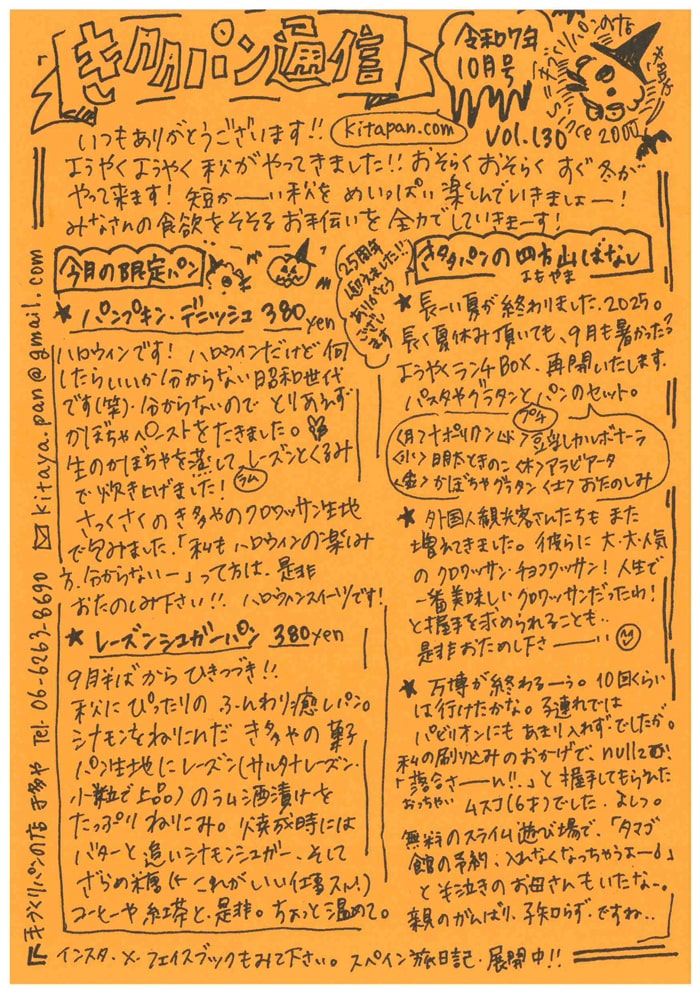 きタタパン通信
令和7年
10月号
手づくりパンの店
since 2000
kitapan.com
vol.130
いつもありがとうございます!!
ようやくようやく秋がやってきました!! おそらくおそらくすぐ冬が
やって来ます! 短かーーい秋をめいっぱい楽しんでいきましょー!
みなさんの食欲をそそるお手伝いを全力でしていきまーす!
今月の限定パン
★ パンプキン・デニッシュ 380yen
ハロウィンです! ハロウィンだけど何
したらいいか分からない昭和世代
です(笑)・分からないのでとりあえず
かぼちゃペーストをたきました。
生のかぼちゃを蒸して、レーズンとくるみ
ラム
で炊き上げました!
さっくさくのき多やのクロワッサン生地
で包みました.「私もハロウィンの楽しみ
方、分からないー」って方は、是非
おたのしみ下さい!! ハロウィンスイーツです!
★ レーズンシュガーパン 380yen
9月半ばからひきつづき!!
秋にぴったりのふーんわり癒しパン。
シナモンをねりこんだき多やの菓子
パン生地にレーズン(サルタナレーズン・
小粒で上品)のラム酒漬けを
たっぷりねりこみ。焼成時には
バターと追いシナモンシュガー、そして
ざらめ糖(←これがいい仕事スル!)
コーヒーや紅茶と・是非。ちょっと温めて。
25周年
迎えました!!
ありがとう
ございます
きタタパンの四方山ばなし
よもやま
★ 長ーい夏が終わりました、2025。
長く夏休み頂いても、9月も暑かった?
ようやくランチBOX、再開いたします.
パスタやグラタンとパンのセット。
プチ
<月>ナポリタン<火>豆乳カルボナーラ
<水>明太きのこ<木>アラビアータ
<金>かぼちゃグラタン<土>おたのしみ
★ 外国人観光客さんたちもまた
増えてきました。彼らに大・大・人気
のクロワッサン・チョコクロワッサン! 人生で
一番美味しいクロワッサンだったわ!
と握手を求められることも..
是非おためし下さーーーい
★ 万博が終わるーぅ。10回くらい
は行けたかな。子連れでは
パビリオンにもあまり入れず・でしたが。
私の刷り込みのおかげで、null2で、
「落合さーーん!!」と握手してもらえた
おっちゃい ムスコ(6才)でした.よしっ。
無料のスライム遊び場で、「タマゴ
館の予約、入れなくなっちゃうよー」
と半泣きのお母さんもいたなー。
親のがんばり、子知らず、ですね..
手づくりパンの店 き多や Tel- 06-6263-8690 kitaya.pan@gmail.com
インスタ・X・フェイスブックもみて下さい。スペイン旅日記・展開中!!